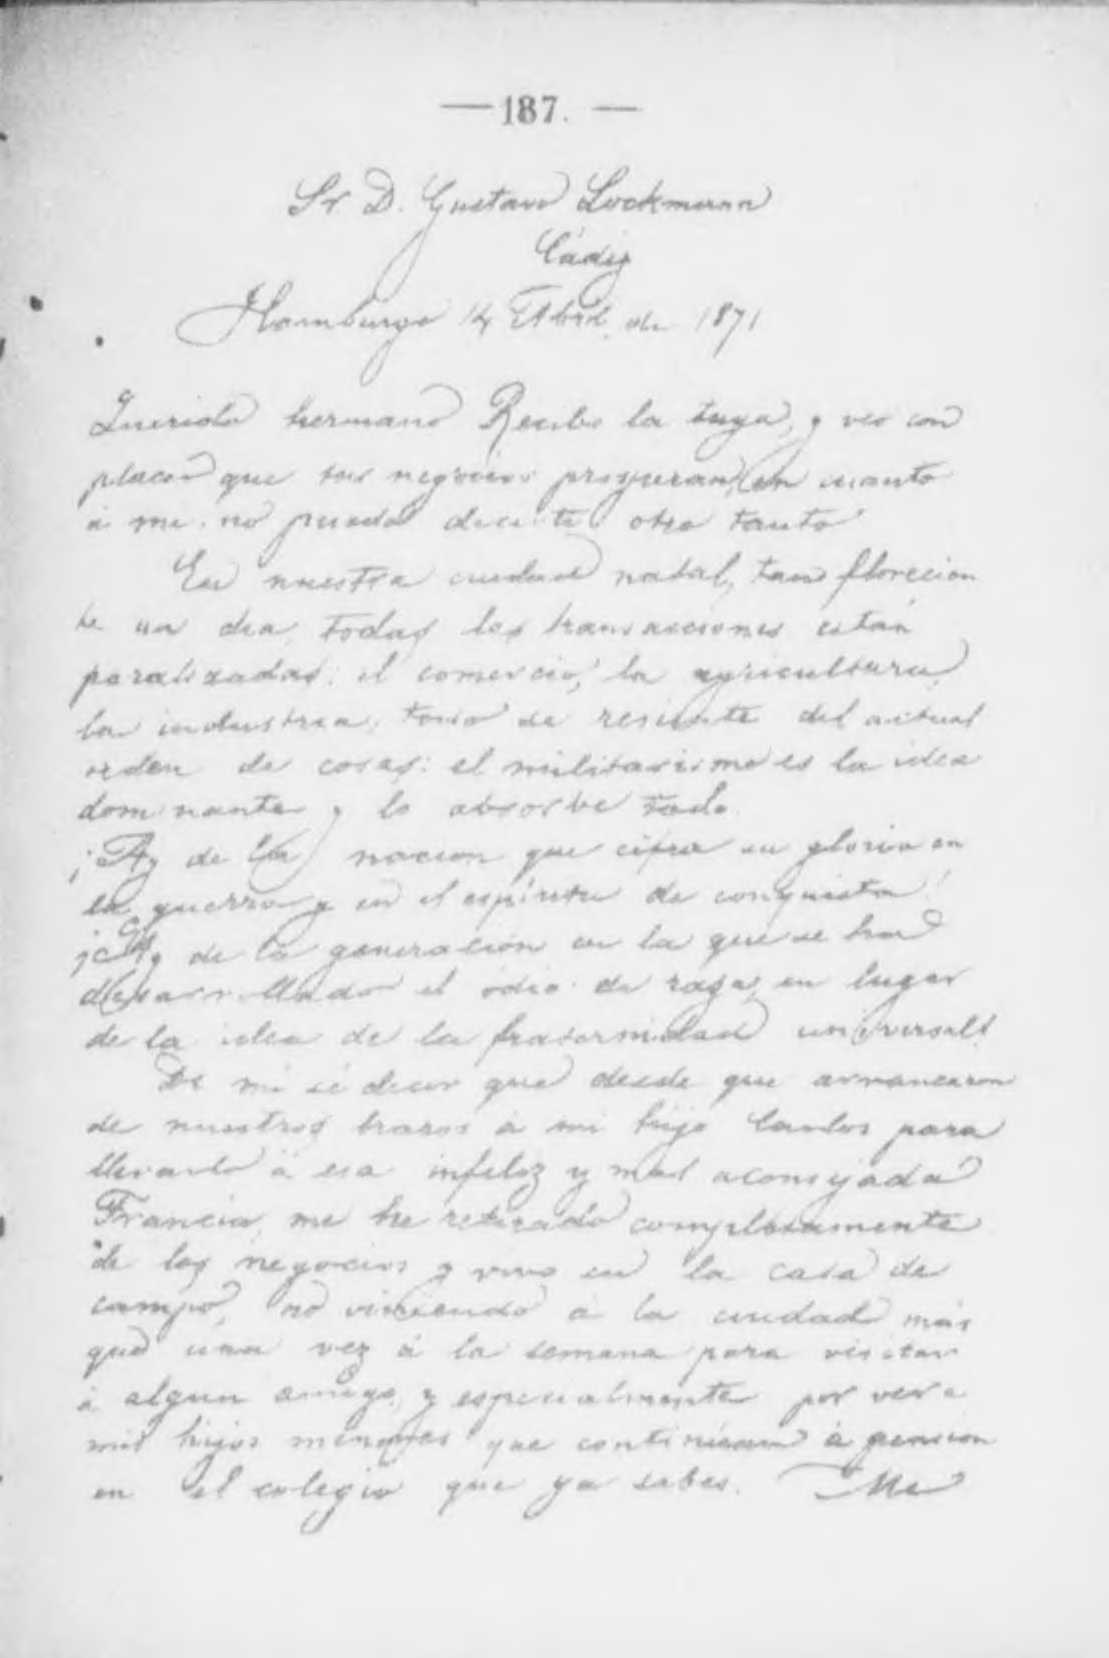 — 187. —
Sr D. Gustavo Lockmann
Cádiz
Hamburgo 14 Abril de 1871
Querido hermano Recibo la tuya, y veo con
placer que tus negocios prosperan, en cuanto
á mi no puedo decirte otro tanto
En nuestra ciudad natal, tan florecien
te un dia, todas las transacciones están
paralizadas: el comercio, la agricultura,
la industria, todo se resiente del actual
orden de cosas: el militarismo es la idea
dominante y lo absorbe todo.
¡Ay de la nacion que cifra su gloria en
la guerra y en el espíritu de conquista!
¡Ay de la generación en la que se ha
desarrollado el odio de raza, en lugar
de la idea de la fraternidad universal!
De mi sé decir que desde que arrancaron
de nuestros brazos á mi hijo Carlos para
llevarlo á esa infeliz y mal aconsejada
Francia, me he retirado completamente
de los negocios y vivo en la casa de
campo, no viniendo á la ciudad más
que una vez á la semana para visitar
á algun amigo, y especialmente por ver a
mis hijos menores que continúan á pensión
en el colegio que ya sabes. Me